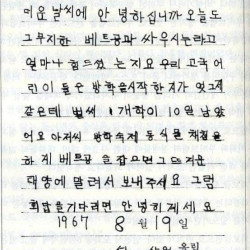 더운 날씨에 안녕하십니까 오늘도
그 무지한 베트공과 싸우시느라고
얼마나 힘드셨는지요 우리 고국 어
린이들은 방학을 시작한지가 엇그제
같은데 벌써 개학이 10일 남았
어요 아저씨 방학숙제 동식물 채집을
하게 베트공을 잡으면 그 뜨거운
태양에 말려서 보내주세요 그럼
회답을 기다리며 안녕히 계세요
1967 8월 19일
올림